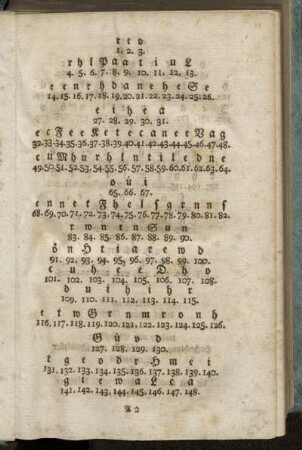 r e v
1. 2. 3.
r h l P a a t i u L
4. 5. 6. 7. 8. 9. 10. 11. 12. 13.
e e n r h d a n e h e S e
14. 15. 16. 17. 18. 19. 20. 21. 22. 23. 24. 25. 26.
e i h e a
27. 28. 29. 30. 31.
e c F e e K e t e c a n e r V a g
32. 33. 34. 35. 36. 37. 38. 39. 40. 41. 42. 43. 44. 45. 46. 47. 48.
c u M h u r h l n t i l e d n e
49. 50. 51. 52. 53. 54. 55. 56. 57. 58. 59. 60. 61. 62. 63. 64.
o ü i
65. 66. 67.
e n n e t F h e l s g r n n f
68. 69. 70. 71. 72. 73. 74. 75. 76. 77. 78. 79. 80. 81. 82.
r w n t n S u n
83. 84. 85. 86. 87. 88. 89. 90.
ö n H t i a r e w d
91. 92. 93. 94. 95. 96. 97. 98. 99. 100.
c u h e e D h o
101. 102. 103. 104. 105. 106. 107. 108.
d u i h i h r
109. 110. 111. 112. 113. 114. 115.
e t w G r n m r o n h
116. 117. 118. 119. 120. 121. 122. 123. 124. 125. 126.
G ü v d
127. 128. 129. 130.
t g e o d r H m e i
131. 132. 133. 134. 135. 136. 137. 138. 139. 140.
g l e w a L e a
141. 142. 143. 144. 145. 146. 147. 148.
A 2